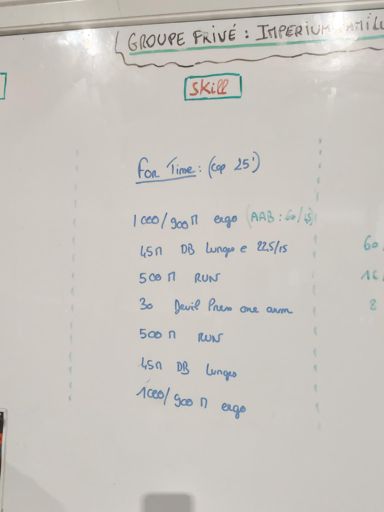 GROUPE PRIVÉ : IMPERIUM
Skill
For Time : (cap 25')
1000/900m ergo (AAB : 60/45)
45m DB Lunges @ 22,5/15
500m RUN
30 Devil Press one arm
500m RUN
45m DB Lunges
1000/900m ergo
60
8